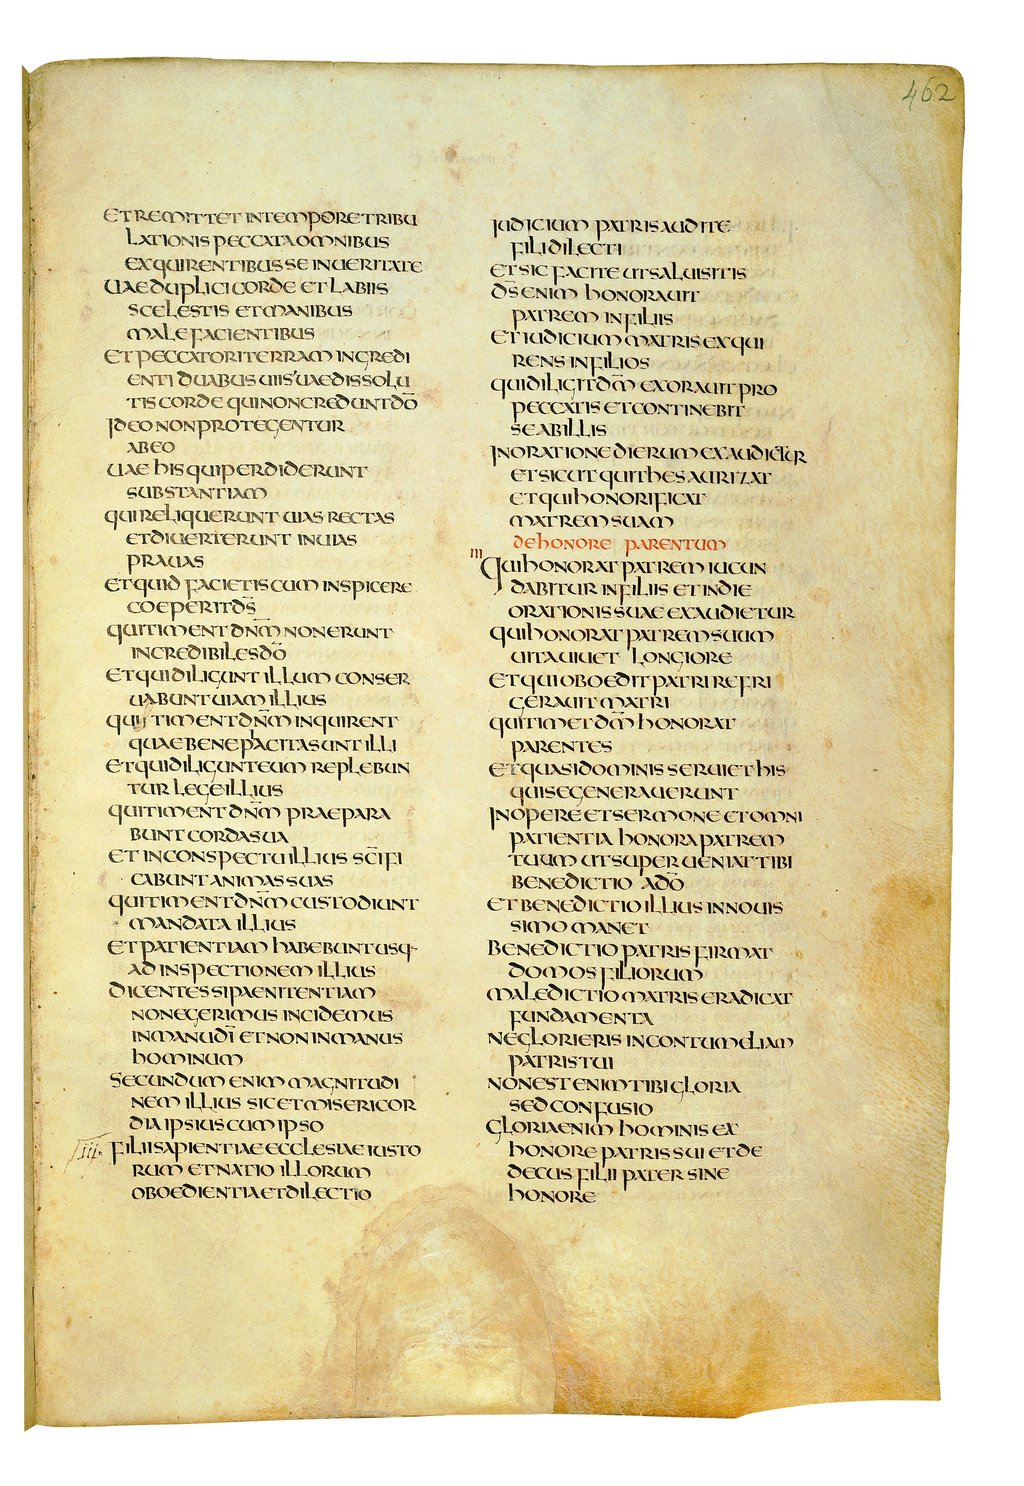 462
ET REMITTET IN TEMPORE TRIBU
LATIONIS PECCATA OMNIBUS
EXQUIRENTIBUS SE IN UERITATE
UAE DUPLICI CORDE ET LABIIS
SCELESTIS ET MANIBUS
MALEFACIENTIBUS
ET PECCATORI TERRAM INGREDI
ENTI DUABUS UIIS UAE DISSOLU
TIS CORDE QUI NON CREDUNT DŌ
IDEO NON PROTEGENTUR
AB EO
UAE HIS QUI PERDIDERUNT
SUBSTANTIAM
QUI RELIQUERUNT UIAS RECTAS
ET DIUERTERUNT IN UIAS
PRAUAS
ET QUID FACIETIS CUM INSPICERE
COEPERIT D̄S̄
QUI TIMENT DN̄M NON ERUNT
INCREDIBILES DŌ
ET QUI DILIGUNT ILLUM CONSER
UABUNT UIAM ILLIUS
QUI TIMENT DN̄M INQUIRENT
QUAE BENEPLACITA SUNT ILLI
ET QUI DILIGUNT EUM REPLEBUN
TUR LEGE ILLIUS
QUI TIMENT DN̄M PRAEPARA
BUNT CORDA SUA
ET IN CONSPECTU ILLIUS SC̄IFI
CABUNT ANIMAS SUAS
QUI TIMENT DN̄M CUSTODIUNT
MANDATA ILLIUS
ET PATIENTIAM HABEBUNT USQ·
AD INSPECTIONEM ILLIUS
DICENTES SI PAENITENTIAM
NON EGERIMUS INCIDEMUS
IN MANU DĪ ET NON IN MANUS
HOMINUM
SECUNDUM ENIM MAGNITUDI
NEM ILLIUS SIC ET MISERICOR
DIA IPSIUS CUM IPSO
III. FILII SAPIENTIAE ECCLESIAE IUSTO
RUM ET NATIO ILLORUM
OBOEDIENTIA ET DILECTIO
IUDICIUM PATRIS AUDITE
FILI DILECTI
ET SIC FACITE UT SALUI SITIS
D̄S̄ ENIM HONORAUIT
PATREM IN FILIIS
ET IUDICIUM MATRIS EXQUI
RENS IN FILIOS
QUI DILIGIT DM̄ EXORAUIT PRO
PECCATIS ET CONTINEBIT
SE AB ILLIS
IN ORATIONE DIERUM EXAUDIETUR
ET SICUT QUI THESAURIZAT
ET QUI HONORIFICAT
MATREM SUAM
DE HONORE PARENTUM
III QUI HONORAT PATREM IUCUN
DABITUR IN FILIIS ET IN DIE
ORATIONIS SUAE EXAUDIETUR
QUI HONORAT PATREM SUUM
UITA UIUET LONGIORE
ET QUI OBOEDIT PATRI REFRI
GERAUIT MATRI
QUI TIMET DM̄ HONORAT
PARENTES
ET QUASI DOMINIS SERUIET HIS
QUI SE GENERAUERUNT
IN OPERE ET SERMONE ET OMNI
PATIENTIA HONORA PATREM
TUUM UT SUPERUENIAT TIBI
BENEDICTIO A DŌ
ET BENEDICTIO ILLIUS IN NOUIS
SIMO MANET
BENEDICTIO PATRIS FIRMAT
DOMOS FILIORUM
MALEDICTIO MATRIS ERADICAT
FUNDAMENTA
NE GLORIERIS IN CONTUMELIAM
PATRIS TUI
NON EST ENIM TIBI GLORIA
SED CONFUSIO
GLORIA ENIM HOMINIS EX
HONORE PATRIS SUI ET DE
DECUS FILII PATER SINE
HONORE